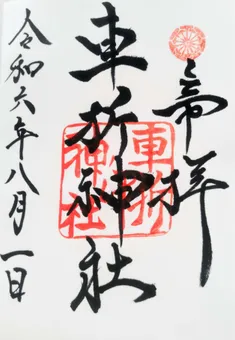 奉拝
車折神社
車折神社
令和六年八月一日